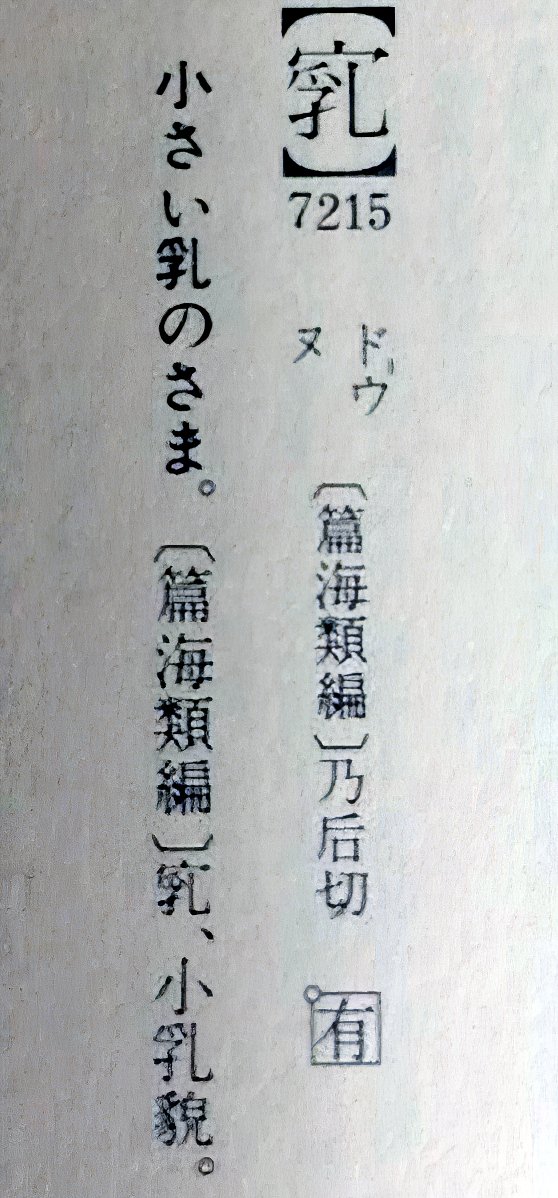 【】
7215
ドウ
ヌ
〔篇海類編〕乃后切 有
小さい乳のさま。〔篇海類編〕、小乳貌。